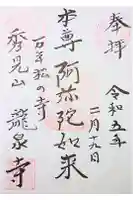 奉拝
令和五年
二月十九日
本尊 阿弥陀如来
百年松の寺
秀見山 龍泉寺